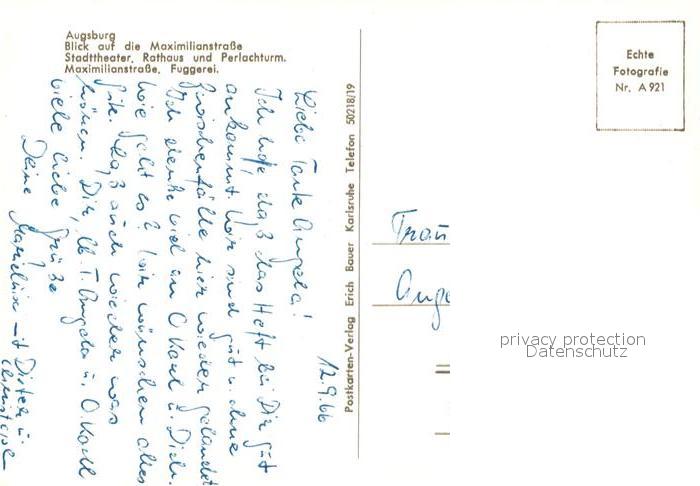 Augsburg
Blick auf die Maximilianstraße
Stadttheater, Rathaus und Perlachturm.
Maximilianstraße, Fuggerei.
Echte
Fotografie
Nr. A 921
Postkarten-Verlag Erich Bauer Karlsruhe Telefon 50218/19
12.9.66
Liebe Tante Angela!
Ich hoffe, daß das Heft bei Dir gut
ankommt. Wir sind gut u. ohne
Zwischenfälle hier wieder gelandet
Ich denke viel an O. Karl u. Dich.
Wie geht es? Wir wünschen alles
Gute. Laß auch wieder was
hören. Dir, lb. T. Angela u. O. Karl
viele liebe Grüße
Deine mit Dieter u.
Frau
Ange
privacy protection
Datenschutz